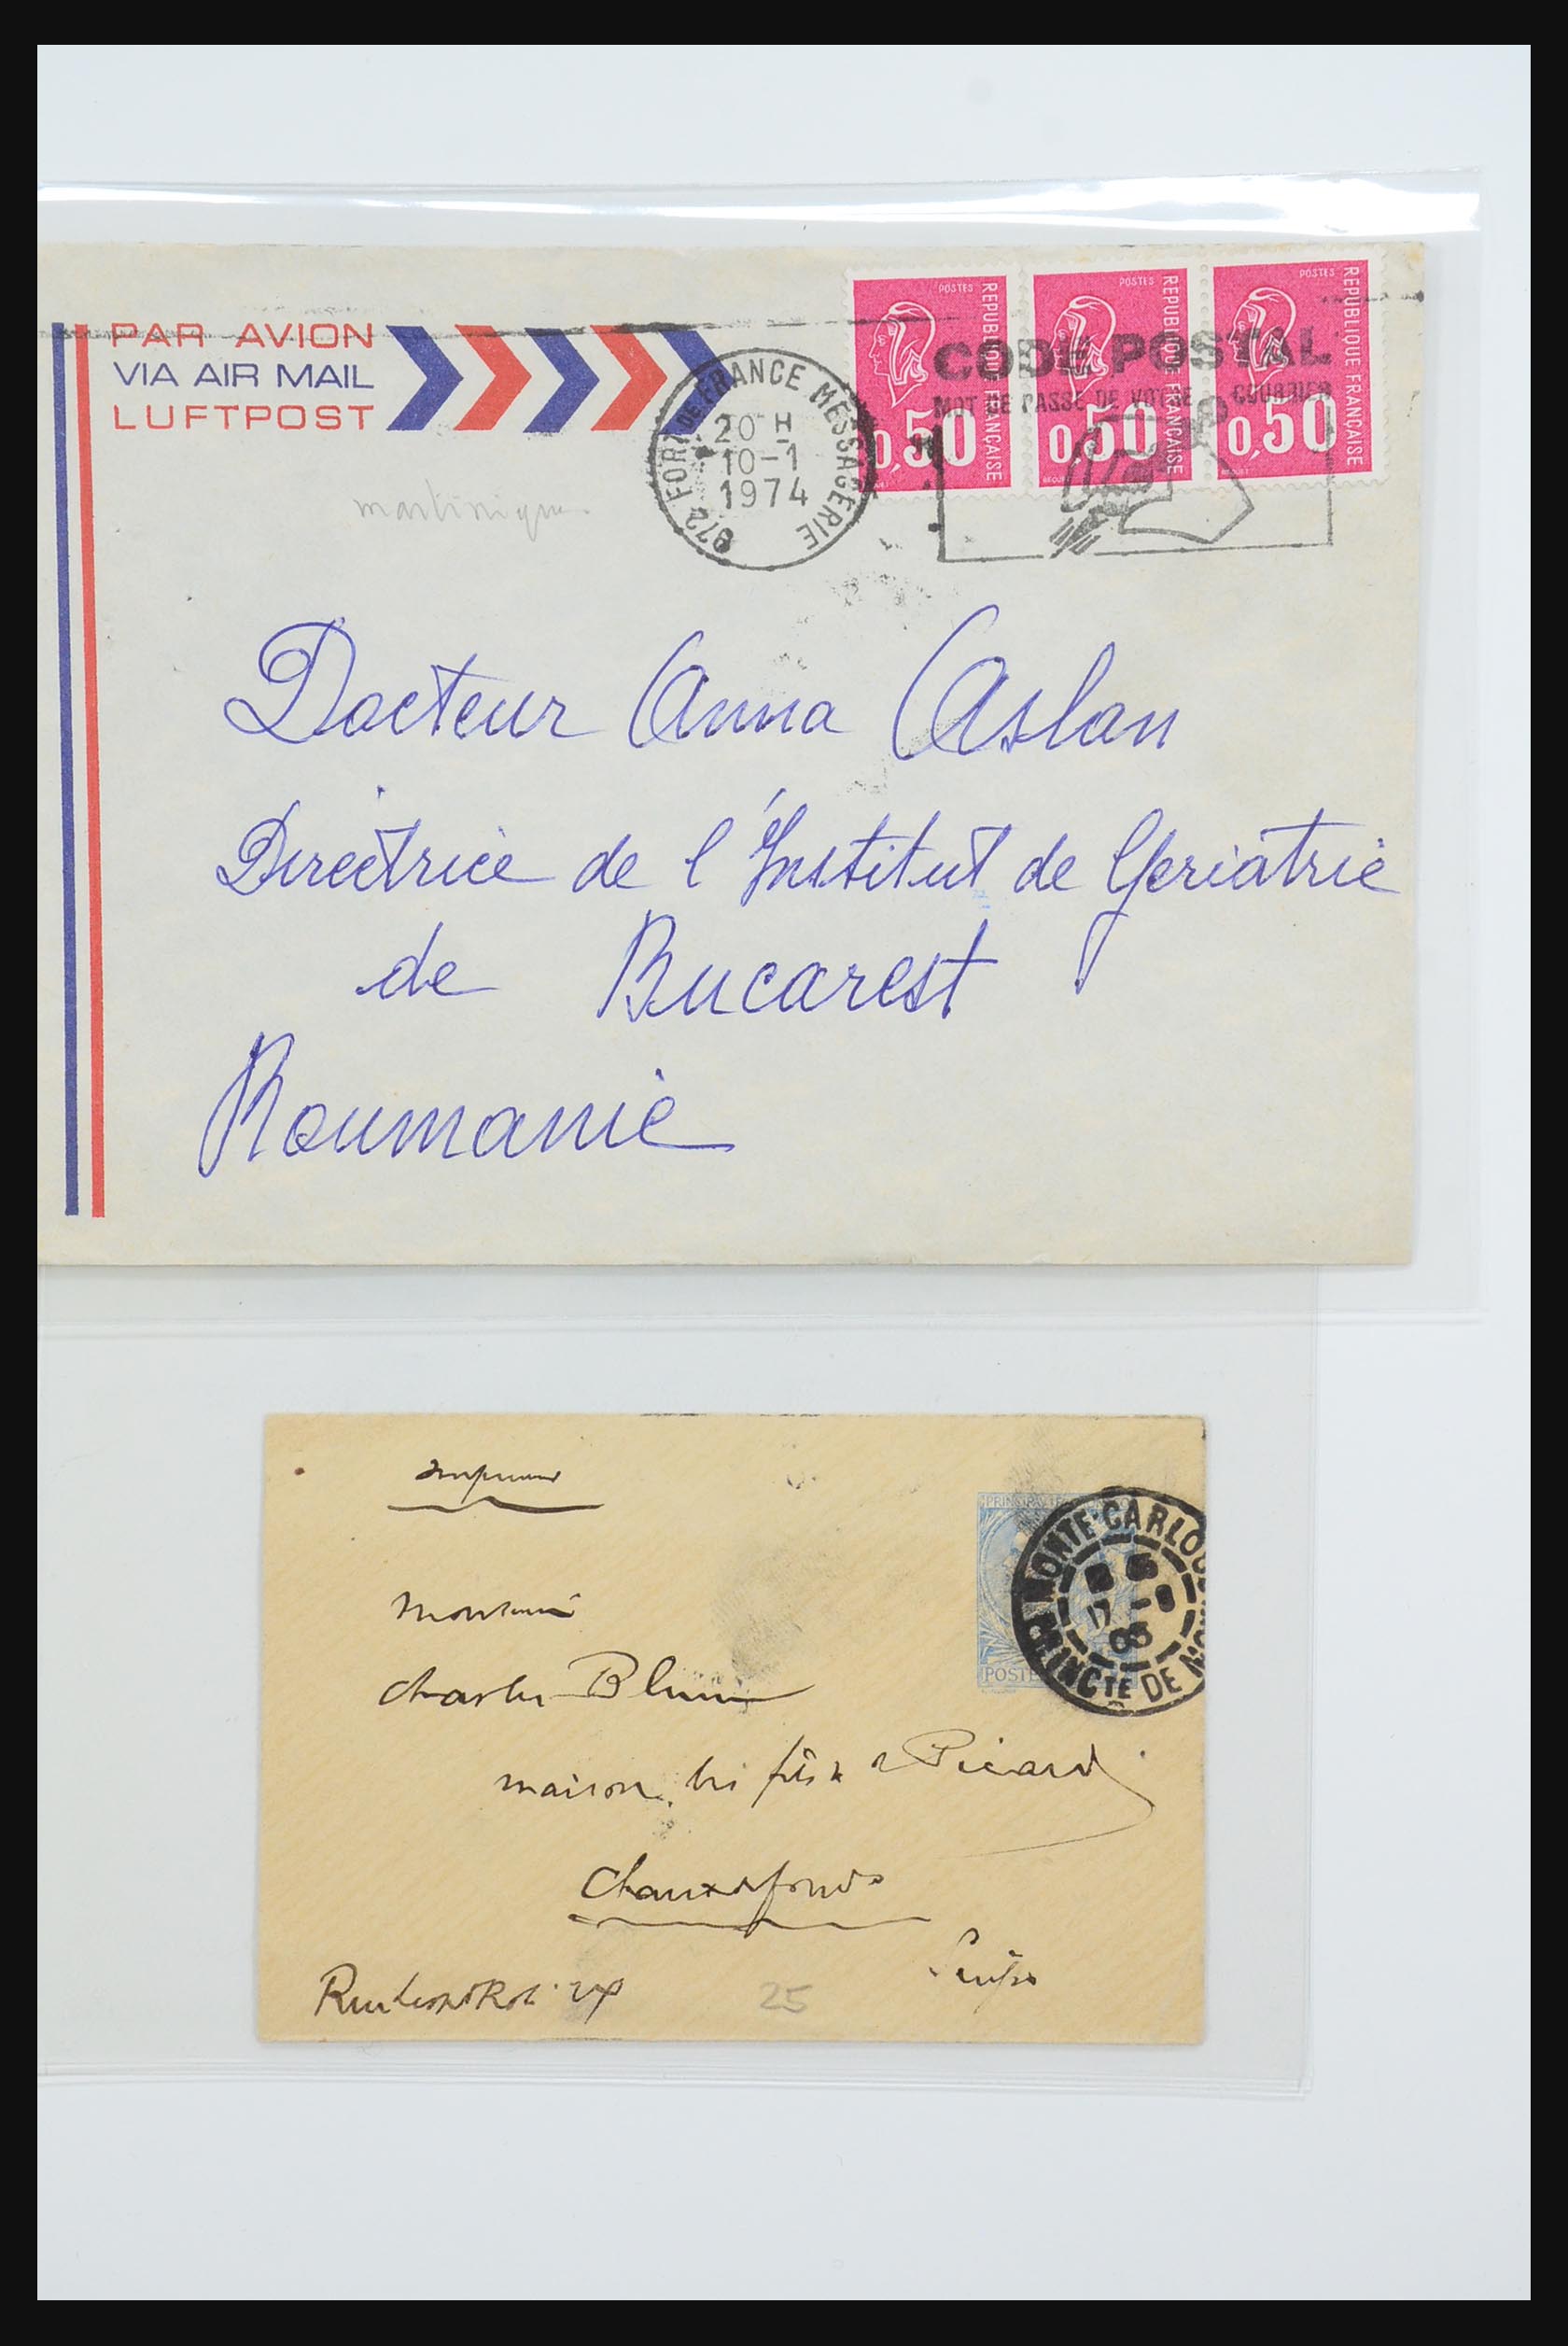 PAR AVION
VIA AIR MAIL
LUFTPOST
martinique
972 FORT DE FRANCE MESSAGERIE
20 H
10-1
1974
POSTES REPUBLIQUE FRANÇAISE 0,50
POSTES REPUBLIQUE FRANÇAISE 0,50
POSTES REPUBLIQUE FRANÇAISE 0,50
CODE POSTAL
MOT DE PASSE DE VOTRE COURRIER
Docteur Anna Aslan
Directrice de l'Institut de Geriatrie
de Bucarest
Roumanie
Imprimé
MONTE-CARLO
17
PRINCTE DE
POSTE
Monsieur
Charles Blum
maison les fils de Picard
Chauxdefonds
Suisse
Rue Leopold Rob
25